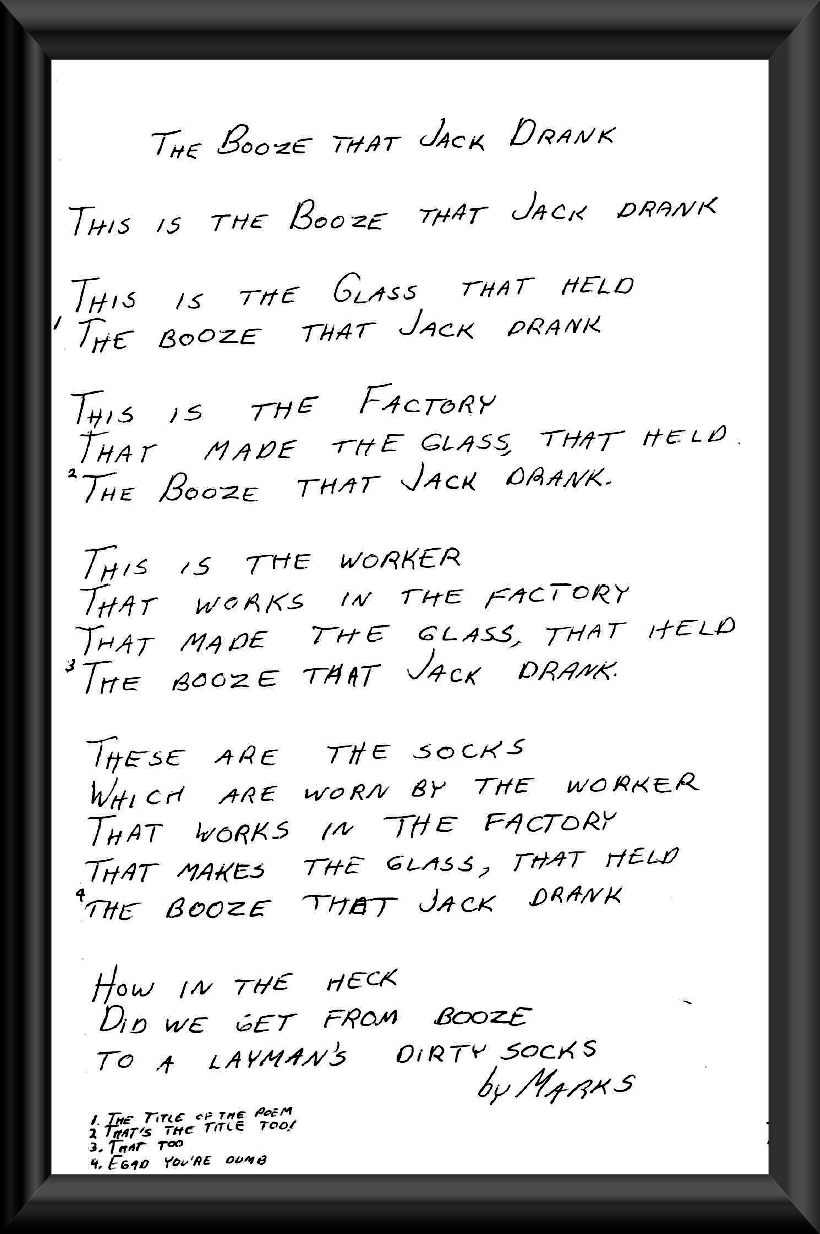 The Booze that Jack Drank
This is the Booze that Jack drank
This is the Glass that held
1 The booze that Jack drank
This is the Factory
That made the glass, that held.
2 The Booze that Jack drank.
This is the worker
That works in the factory
That made the glass, that held
3 The booze that Jack drank.
These are the socks
Which are worn by the worker
That works in the factory
That makes the glass, that held
4 The booze that Jack drank
How in the heck
Did we get from booze
to a layman's dirty socks
by Marks
1. The Title of the poem
2 That's the title too!
3. That too
4. Egad you're dumb